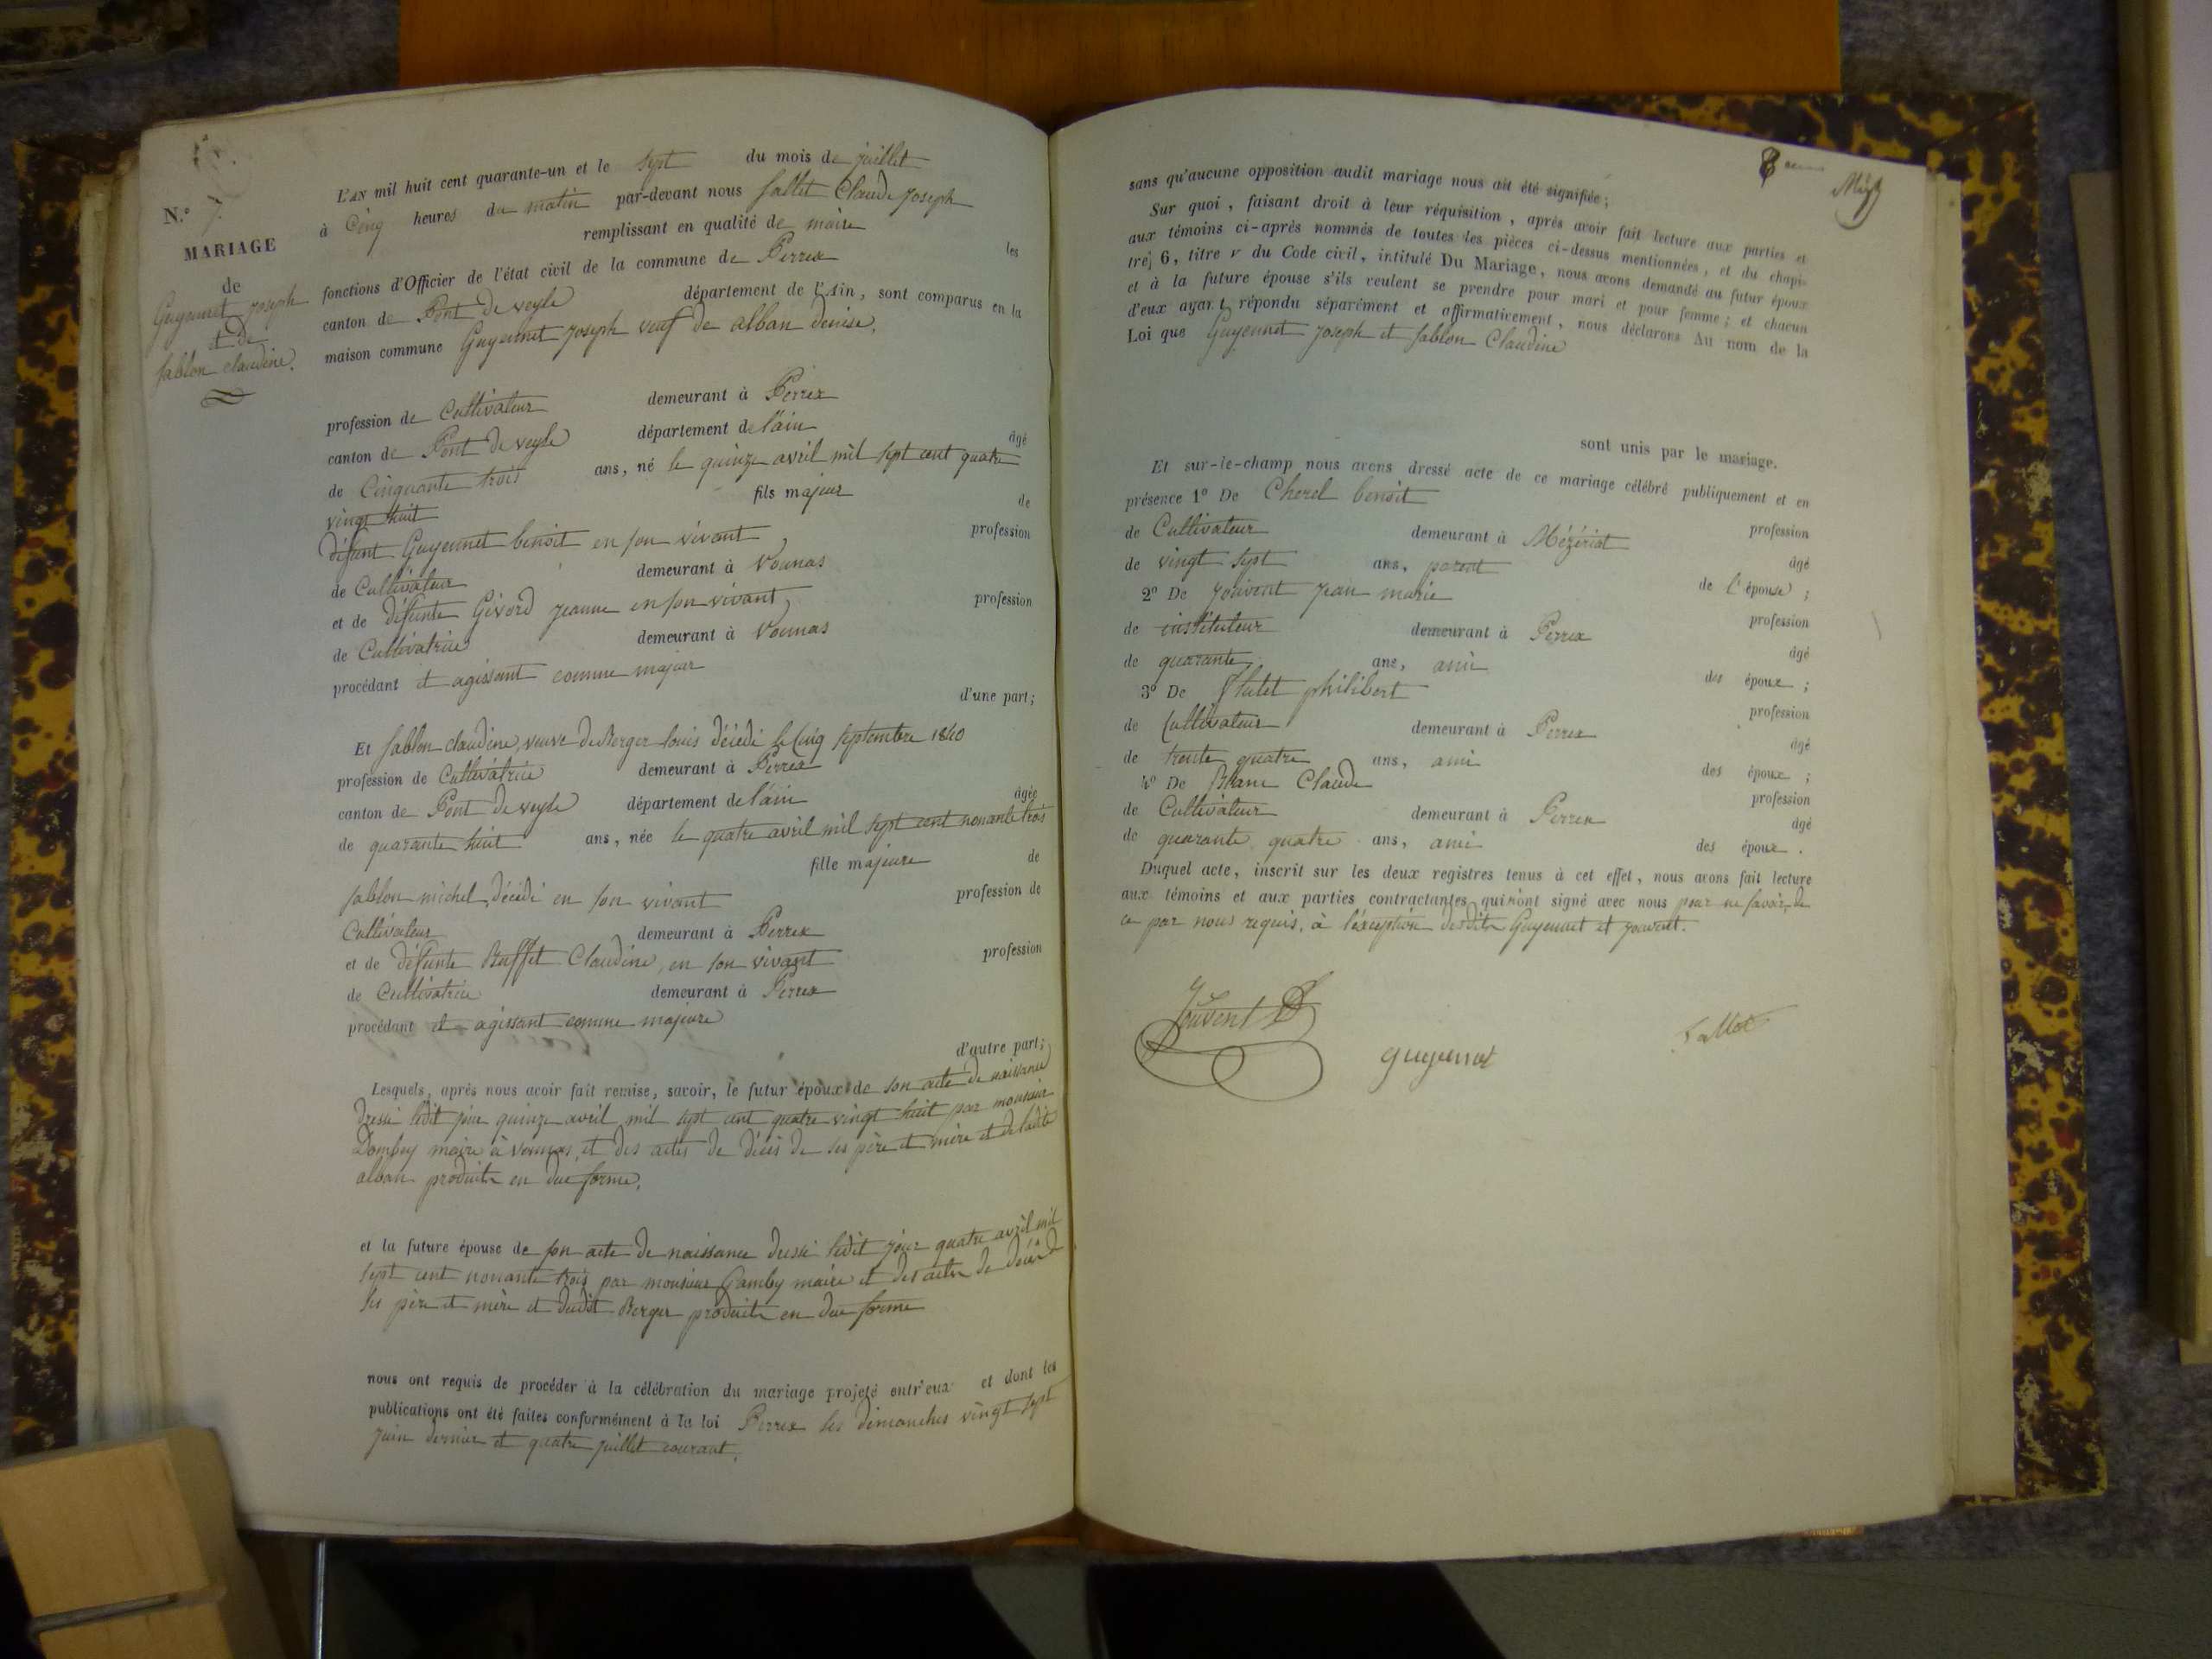 N.° 7.
MARIAGE
de
Guyennet Joseph
et de
Sablon claudine.
L'an mil huit cent quarante-un et le sept du mois de juillet
à Cinq heures du matin par-devant nous Sallet Claude Joseph
remplissant en qualité de maire les
fonctions d'Officier de l'état civil de la commune de Perrex
canton de Pont de veyle département de l'Ain, sont comparus en la
maison commune Guyennet Joseph veuf de alban denise,
profession de Cultivateur demeurant à Perrex
canton de Pont de veyle département de l'ain âgé
de Cinquante trois ans, né le quinze avril mil sept cent quatre
vingt huit fils majeur de
défunt Guyennet benoit en son vivant profession
de Cultivateur demeurant à Vonnas
et de défunte Givord jeanne en son vivant, profession
de Cultivatrice demeurant à Vonnas
procédant et agissant comme majeur
d'une part;
Et Sablon claudine, veuve de Berger louis décédé le Cinq septembre 1840
profession de Cultivatrice demeurant à Perrex
canton de Pont de veyle département de l'ain âgée
de quarante huit ans, née le quatre avril mil sept cent nonante trois
fille majeure de
Sablon michel, décédé en son vivant profession de
Cultivateur demeurant à Perrex
et de défunte Buffet Claudine, en son vivant profession
de Cultivatrice demeurant à Perrex
procédant et agissant comme majeure
d'autre part;
Lesquels, après nous avoir fait remise, savoir, le futur époux de son acte de naissance
dressé ledit jour quinze avril mil sept cent quatre vingt huit par monsieur
Dombey maire à vonnas, et des actes de décès de ses père et mère et de ladite
alban produits en due forme.
et la future épouse de son acte de naissance dressé ledit jour quatre avril mil
sept cent nonante trois par monsieur Gamby maire et des actes de décès de
ses père et mère et dudit Berger produits en due forme
nous ont requis de procéder à la célébration du mariage projeté entr'eux et dont les
publications ont été faites conformément à la loi Perrex les dimanches vingt sept
juin dernier et quatre juillet courant,
sans qu'aucune opposition audit mariage nous ait été signifiée;
Sur quoi, faisant droit à leur réquisition, après avoir fait lecture aux parties et
aux témoins ci-après nommés de toutes les pièces ci-dessus mentionnées, et du chapi-
tre 6, titre v du Code civil, intitulé Du Mariage, nous avons demandé au futur époux
et à la future épouse s'ils veulent se prendre pour mari et pour femme; et chacun
d'eux ayant répondu séparément et affirmativement, nous déclarons Au nom de la
Loi que Guyennet Joseph et Sablon Claudine
sont unis par le mariage.
Et sur-le-champ nous avons dressé acte de ce mariage célébré publiquement et en
présence 1° De Cherel benoit profession
de Cultivateur demeurant à Mézériat âgé
de vingt sept ans, parent de l'épouse;
2° De Jouvent Jean marie profession
de instituteur demeurant à Perrex âgé
de quarante ans, ami des époux;
3° De Flutet philibert profession
de Cultivateur demeurant à Perrex âgé
de trente quatre ans, ami des époux;
4° De Blanc Claude profession
de Cultivateur demeurant à Perrex âgé
de quarante quatre ans, ami des époux.
Duquel acte, inscrit sur les deux registres tenus à cet effet, nous avons fait lecture
aux témoins et aux parties contractantes qui n'ont signé avec nous pour ne savoir, de
ce par nous requis, à l'éxception desdits Guyennet et jouvent.
Jouvent
guyennet
Sallet